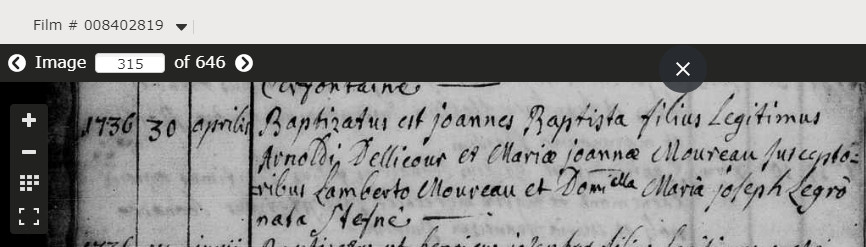 Film # 008402819
Image 315 of 646
Cerfontaine
1736 30 aprilis Baptizatus est joannes Baptista filius Legitimus
Arnoldi Dellicour et Mariæ joannæ Moureau suscepto=
ribus Lamberto Moureau et Domicella Maria joseph Legro
nata Stefné